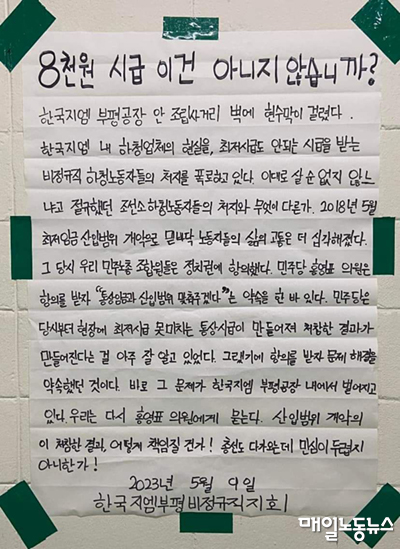 8천원 시급 이건 아니지 않습니까?
한국지엠 부평공장 안 조립사거리 벽에 현수막이 걸렸다.
한국지엠 내 하청업체의 현실을, 최저시급도 안되는 시급을 받는
비정규직 하청노동자들의 처지를 폭로하고 있다. 이대로 살 순 없지 않느
냐고 절규했던 조선소 하청노동자들의 처지와 무엇이 다른가. 2018년 5월
최저임금 산입범위 개악으로 밑바닥 노동자들의 삶의 고통은 더 심각해졌다.
그 당시 우리 민주노총 조합원들은 정치권에 항의했다. 민주당 홍영표 의원은
항의를 받자 "통상임금과 산입범위 맞춰주겠다"는 약속을 한 바 있다. 민주당은
당시부터 현장에 최저시급 못미치는 통상시급이 만들어져 처참한 결과가
만들어진다는 걸 아주 잘 알고 있었다. 그랬기에 항의를 받자 문제 해결을
약속했던 것이다. 바로 그 문제가 한국지엠 부평공장 내에서 벌어지고
있다. 우리는 다시 홍영표 의원에게 묻는다. 산입범위 개악의
이 처참한 결과, 어떻게 책임질 건가! 총선도 다가오는데 민심이 두렵지
아니한가!
2023년 5월 9일
한국지엠부평비정규직지회
매일노동뉴스